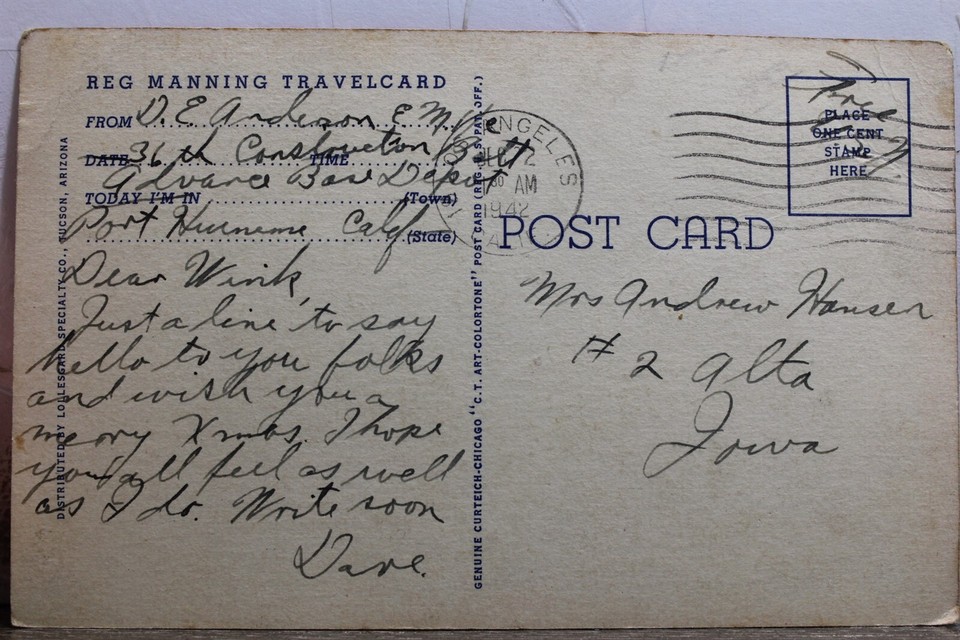 REG MANNING TRAVELCARD
FROM D. E. Anderson E M
DATE 36th Construction TIME Batt
Advance Base Depot
TODAY I'M IN (Town)
Port Hueneme Calif
(State)
Dear Wink,
Just a line to say
hello to you folks
and wish you a
merry Xmas. I hope
you all feel as well
as I do. Write soon
Dave.
DISTRIBUTED BY LOLLESGARD SPECIALTY CO., TUCSON, ARIZONA
GENUINE CURTEICH-CHICAGO "C.T. ART-COLORTONE" POST CARD (REG. U.S. PAT. OFF.)
ANGELES
AM
1942
Free
PLACE
ONE CENT
STAMP
HERE
POST CARD
Mrs Andrew Hansen
# 2 Alta
Iowa